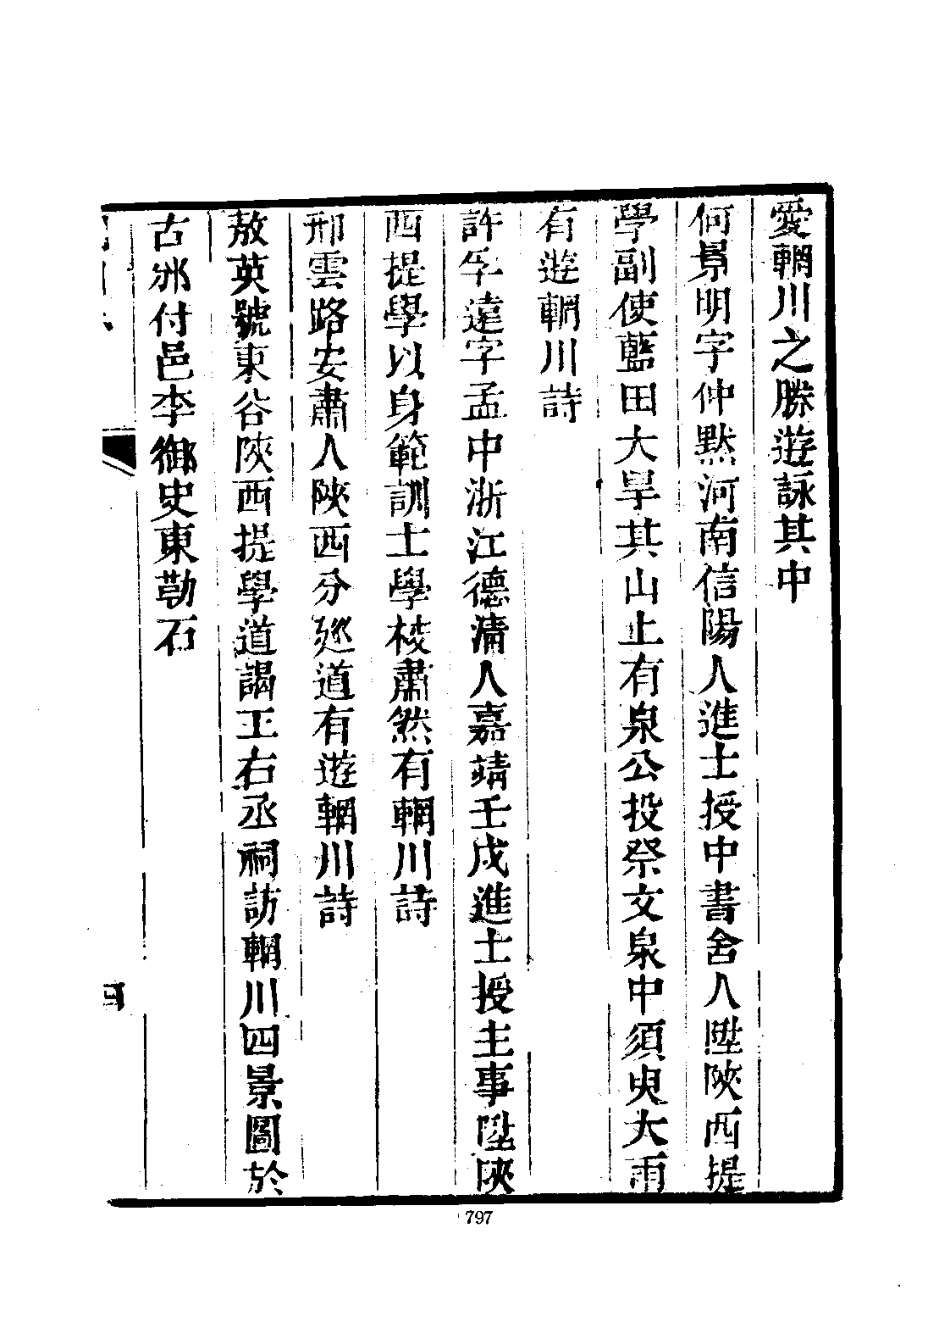 愛輞川之勝遊詠其中
何景明字仲默河南信陽人進士授中書舍人陞陝西提
學副使藍田大旱其山上有泉公投祭文泉中須臾大雨
有遊輞川詩
許孚遠字孟中浙江德清人嘉靖壬戌進士授主事陞陝
西提學以身範訓士學校肅然有輞川詩
邢雲路安肅人陝西分廵道有遊輞川詩
敖英號東谷陝西提學道謁王右丞祠訪輞川四景圖於
古邠付邑李御史東勒石
四
797